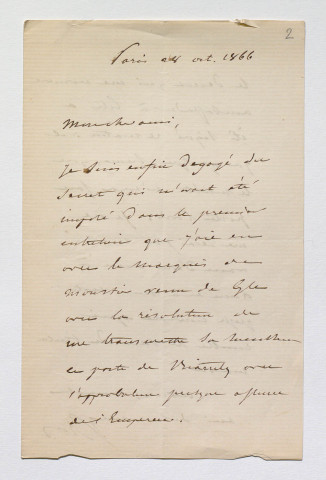 2
Paris 28 oct. 1866
Mon cher ami,
Je suis enfin dégagé du
secret qui m'avait été
imposé dans le premier
entretien que j'aie eu
avec le Marquis de
Moustier venu de
avec la résolution de
me transmettre
ce poste de Biarritz avec
l'approbation presque assurée
de l'Empereur.